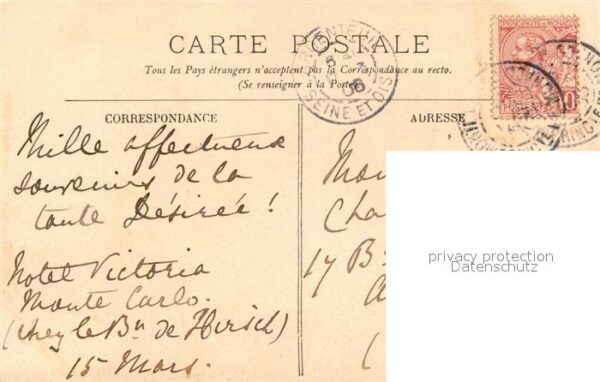 CARTE POSTALE
Tous les Pays étrangers n'acceptent pas la Correspondance au recto.
(Se renseigner à la Poste)
CORRESPONDANCE
ADRESSE
Mille affectueux
souvenirs de la
tante Désirée!
Hotel Victoria
Monte Carlo.
(chez le Bn de Hirsch)
15 Mars.
17 B
PRINCIPAUTÉ DE MONACO
ARGENTEUIL
SEINE ET OISE
privacy protection
Datenschutz